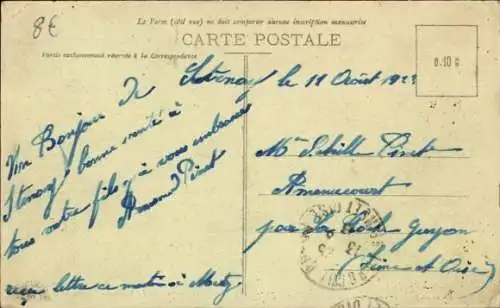 8€
Le Port (été vue) ne doit comporter aucune inscription manuscrite
CARTE POSTALE
Partie exclusivement réservée à la Correspondance
0.10 G
Stenay le 11 Août 192
Un Bonjour de
Stenay bonne santé à
tous votre fils qui vous embrasse
Armand Pinet
reçu lettre ce matin à Metz
Mr Achille Pinet
Amenucourt
par la Roche Guyon
(Seine et Oise)